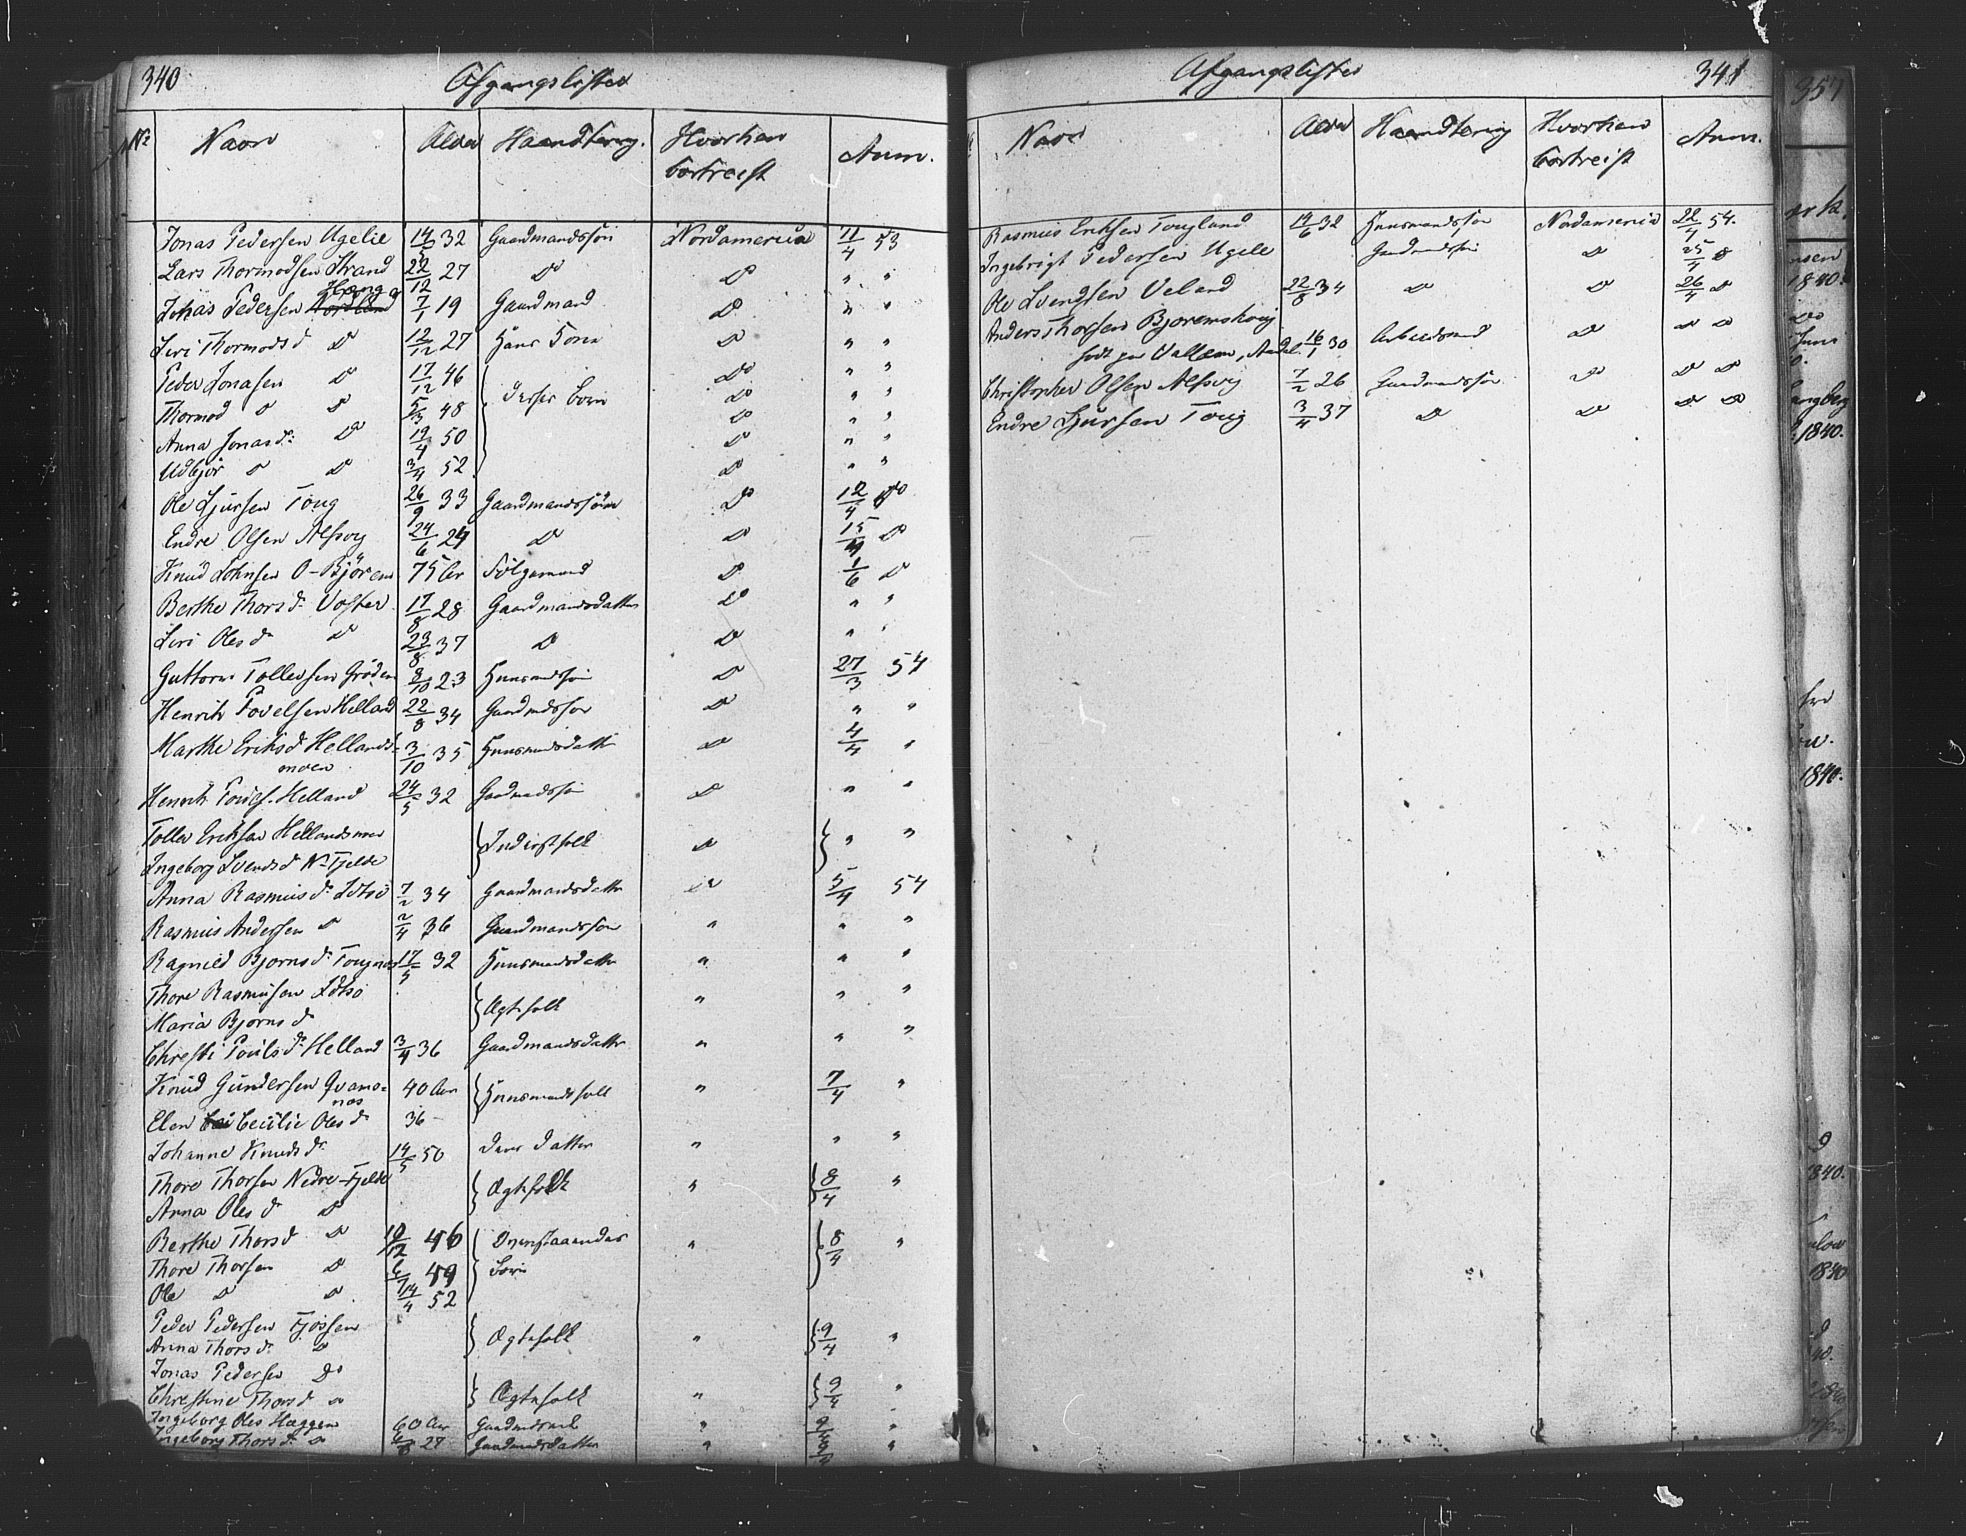 340 Afgangslister
No Navn Alder Haandtering. Hvorhen bortreist Anm.
Jonas Pedersen Ugelie 14/5 32 Gaardmandssøn Nordamerica 11/4 53
Lars Thormodsen Strand 22/12 27 Do Do " "
Hauge
Johas Pedersen 7/1 19 Gaardmand Do " "
Siri Thormodsd Do 12/12 27 Hans Kone Do " "
Peder Jonasen Do 17/12 46 Do " "
Thormod Do Do 5/3 48 Deres børn Do " "
Anna Jonasd: Do 19/4 50 Do " "
Udbjør Do Do 3/4 52 Do " "
Ole Sjursen Toug 26/9 33 Gaardmandssøn Do 12/4 Do
Endre Olsen Alsvig 24/6 29 Do Do 15/4 Do
Knud Johnsen O-Bjørem 75 Aar Følgemand Do 1/6 Do
Berthe Thorsd. Voster 17/8 28 Gaardmandsdatter Do " "
Siri Olesd. Do 23/8 37 Do Do " "
Guttorm Tollevsen Grøden 8/10 23 Huusmandssøn Do 27/3 54
Henrik Povelsen Helland 22/8 34 Gaardmdssøn Do " "
Marthe Eriksd Hellands- 3/10 35 Huusmandsdatter Do 4/4 "
moen
Henrik Povels. Helland 24/5 32 Gaardmandssøn Do " "
Tollev Eriksen Hellandsmoen Inderstfolk Do " "
Ingeborg Svendsd. N-Fjelde
Anna Rasmusd. Lotsø 7/2 34 Gaardmandsdatter Do 5/4 54
Rasmus Andersen Do 2/4 36 Gaardmandssøn " " "
Ragnild Bjornsd. 17/5 32 Huusmandsdatter " " "
Thore Rasmusen Lotsø Ægtefolk " " "
Maria Bjornsd.
Christi Poulsd. Helland 3/4 36 Gaardmandsdatter " " "
Knud Gundersen Qvame- 40 Aar Huusmandsfolk " 7/4 "
næs
Elen Cecilie Olesd. 36 -
Johanne Knudsd. 14/5 50 Deres Datter " " "
Thore Thorsen Nedre-Fjelde Ægtefolk " 8/4 "
Anna Olesd. Do
Berthe Thorsd Do 10/12 46 Ovenstaaendes " 8/4 "
Thore Thorsen Do 49 Børn
Ole Do Do 14/4 52
Peder Pedersen Fjossen Ægtefolk " 9/4 "
Anna Thorsd. Do
Jonas Pedersen Do Ægtefolk " 9/4 "
Christine Thorsd Do
Ingeborg Oles Hæggen 60 Aar " 9/4 "
Ingeborg Thorsd. Do 27 Gaardmandsdatter " "
Afgangslister 341
Navn Alder Haandtering Hvorhen bortreist Anm.
Rasmus Eriksen Tougland 14/6 32 Huusmandssøn Nordamerica 22/4 54.
Ingebrigt Pedersen Ugele Gaardmandssøn Do 25/4 Do
Ole Svendsen Veland 22/8 34 Do Do 26/4 Do
Anders Thorsen Bjoremshoug
født paa Vallem, 16/1 30 Arbeidsmand Do Do Do
Christopher Olsen Alsvig 7/2 26 Gaardmandssøn Do Do Do
Endre Sjursen Toug 3/4 37 Do Do Do Do
357
1840.
1840.
1840.
1840.
1840